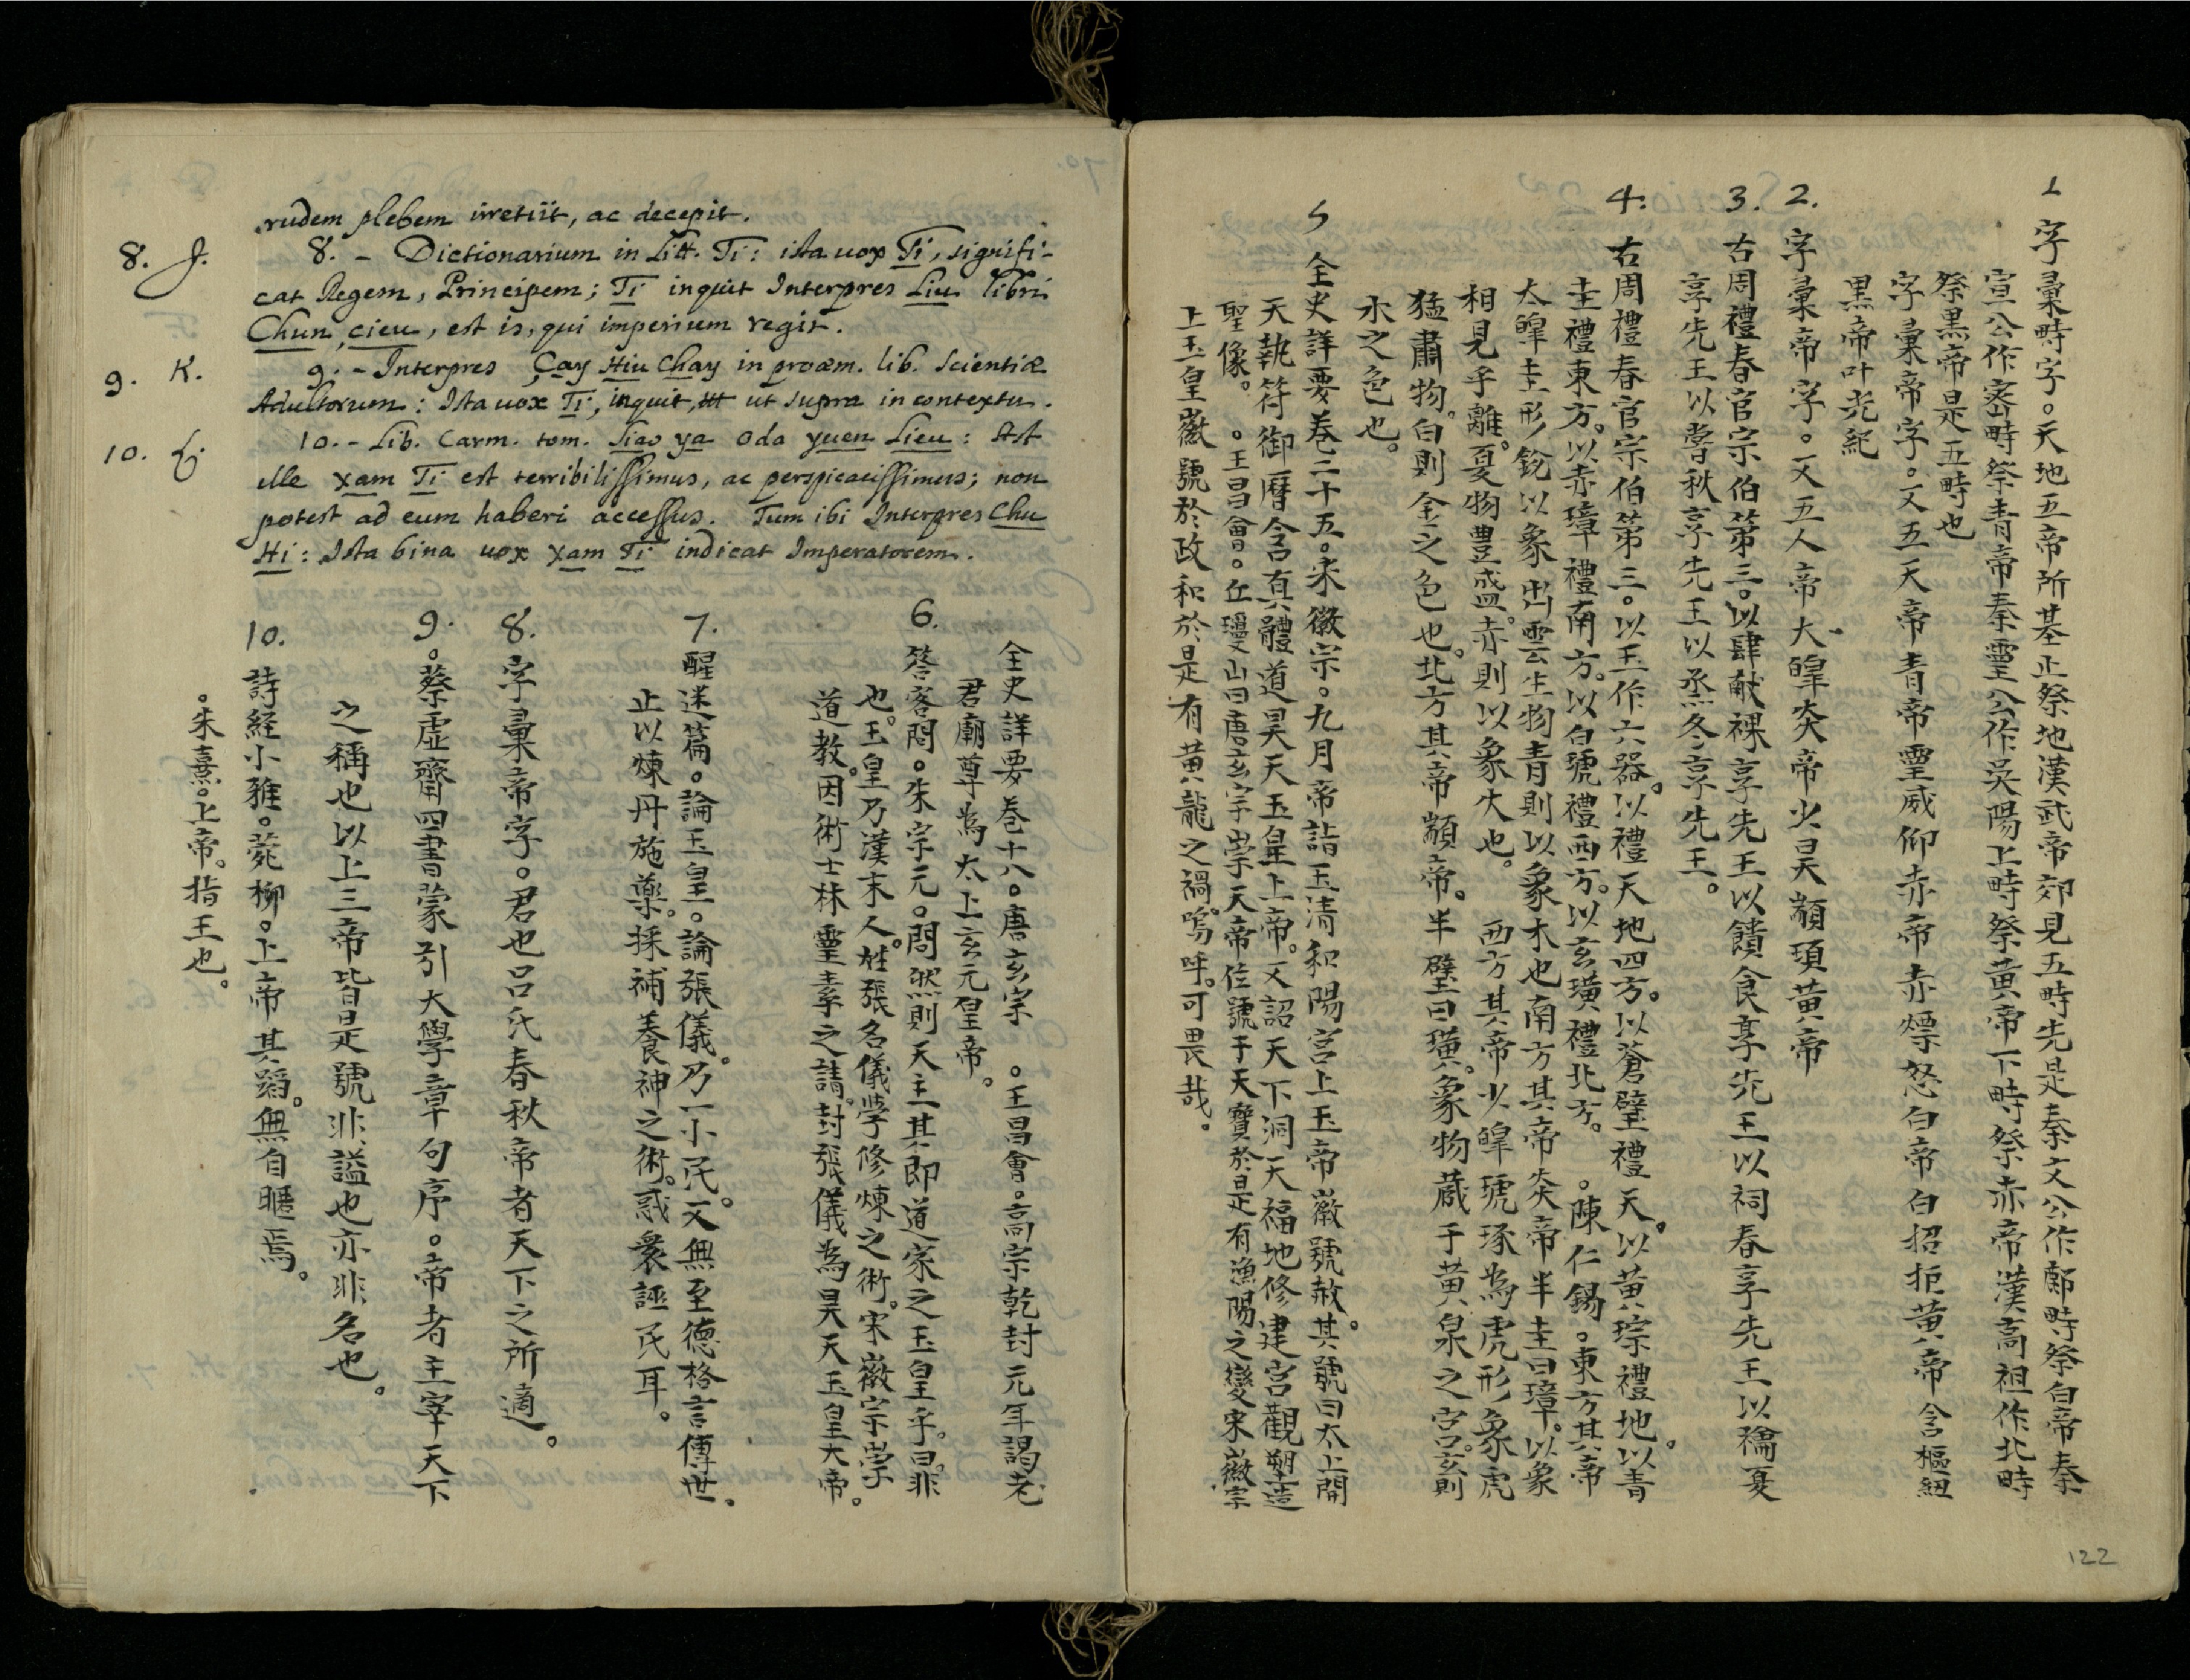 rudem plebem irretiit, ac decepit.
8. J.
8. - Dictionarium in Litt. Ti: ista uox Ti, signifi-
cat Regem, Principem; Ti inquit Interpres Liu libri
Chun cieu, est is, qui imperium regit.
9. K.
9. - Interpres Çay Hiu Chay in proœm. lib. scientiæ
Adultorum: Ista uox Ti, inquit, ut supra in contextu.
10. L.
10. - Lib. Carm. tom. Siao ya Oda yuen lieu: Ast
ille xam Ti est terribilissimus, ac perspicacissimus; non
potest ad eum haberi accessus. Tum ibi Interpres Chu
Hi: Ista bina uox xam Ti indicat Imperatorem.
1
字彙畤字。天地五帝所基止祭地漢武帝郊見五畤先是秦文公作鄜畤祭白帝秦
宣公作密畤祭青帝秦靈公作吳陽上畤祭黃帝下畤祭赤帝漢高祖作北畤
祭黑帝是五畤也
字彙帝字。又五天帝青帝靈威仰赤帝赤熛怒白帝白招拒黃帝含樞紐
黑帝叶光紀
2.
字彙帝字。又五人帝大皥炎帝少昊顓頊黃帝
3.
古周禮春官宗伯第三。以肆献祼享先王以饋食享先王以祠春享先王以禴夏
享先王以嘗秋享先王以烝冬享先王。
4:
古周禮春官宗伯第三。以玉作六器。以禮天地四方。以蒼璧禮天。以黃琮禮地。以青
圭禮東方。以赤璋禮南方。以白琥禮西方。以玄璜禮北方。。陳仁錫。東方其帝
太皥圭形銳以象出雲生物青則以象木也南方其帝炎帝半圭曰璋。以象
相見乎離。夏物豊盛。赤則以象火也。西方其帝少皥琥琢為虎形象虎
猛肅物。白則金之色也。北方其帝顓帝。半璧曰璜。象物蔵于黃泉之宫。玄則
水之色也。
5
全史詳要卷二十五。宋徽宗。九月帝詣玉清和陽宫上玉帝徽號赦。其號曰太上開
天執符御曆含真體道昊天玉皇上帝。又詔天下洞天福地修建宫觀塑造
聖像。。王昌會。丘瓊山曰唐玄宗崇天帝位號于天寶於是有漁陽之變宋徽宗
上玉皇徽號於政和於是有黃龍之禍。嗚呼。可畏哉。
全史詳要卷十八。唐玄宗。王昌會。高宗乾封元年謁老
君廟尊為太上玄元皇帝。
6.
答客問。朱宗元。問然則天主其即道家之玉皇乎。曰。非
也。玉皇乃漢末人。姓張名儀學修煉之術。宋徽宗崇
道教。因術士林靈素之請。封張儀為昊天玉皇大帝。
7.
醒迷篇。論玉皇。論張儀。乃一小民。又無至德格言傳世。
止以煉丹施藥。採補養神之術。惑衆誣民耳。
8.
字彙帝字。君也吕氏春秋帝者天下之所適。
9.
。蔡虛齋四書蒙引大學章句序。帝者主宰天下
之稱也以上三帝皆是號非謚也亦非名也。
10.
詩経小雅。菀柳。上帝其蹈。無自暱焉。
。朱熹。上帝。指王也。
122